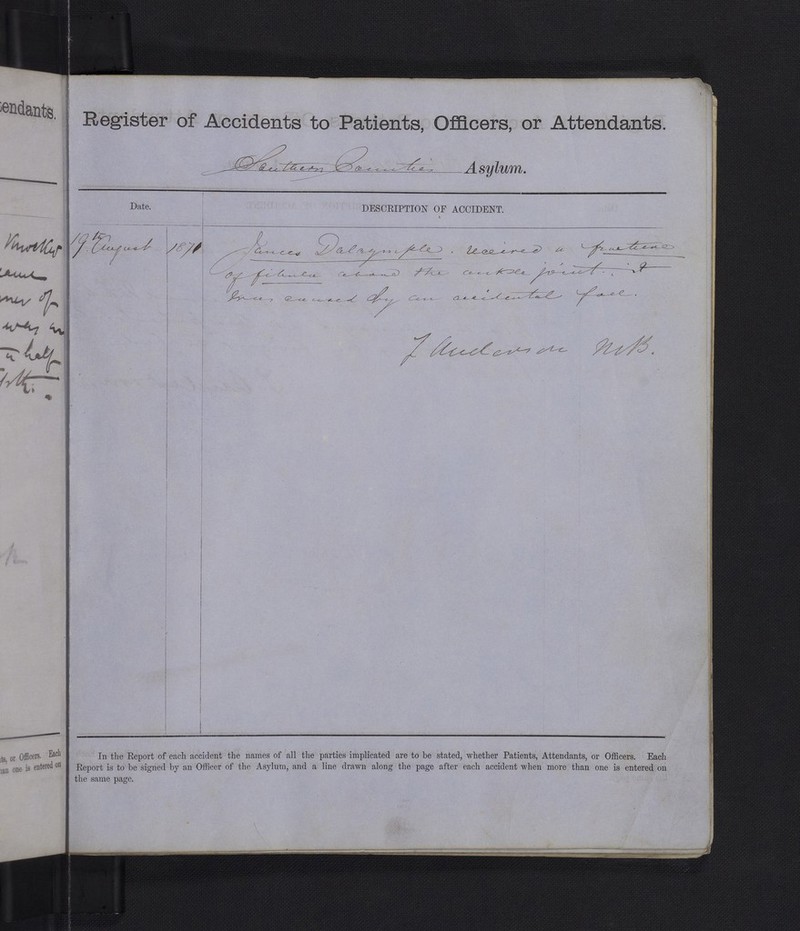 endants.
Register of Accidents to Patients, Officers, or Attendants.
Southern Counties Asylum.
Date.
DESCRIPTION OF ACCIDENT.
19th August 1871 James Dalrymple. received a fracture
of fibula above the ankle joint. It
was caused by an accidental fall.
J Anderson MB.
of
was an
a half
ts, or Officers. Each
han one is entered on
In the Report of each accident the names of all the parties implicated are to be stated, whether Patients, Attendants, or Officers. Each
Report is to be signed by an Officer of the Asylum, and a line drawn along the page after each accident when more than one is entered on
the same page.